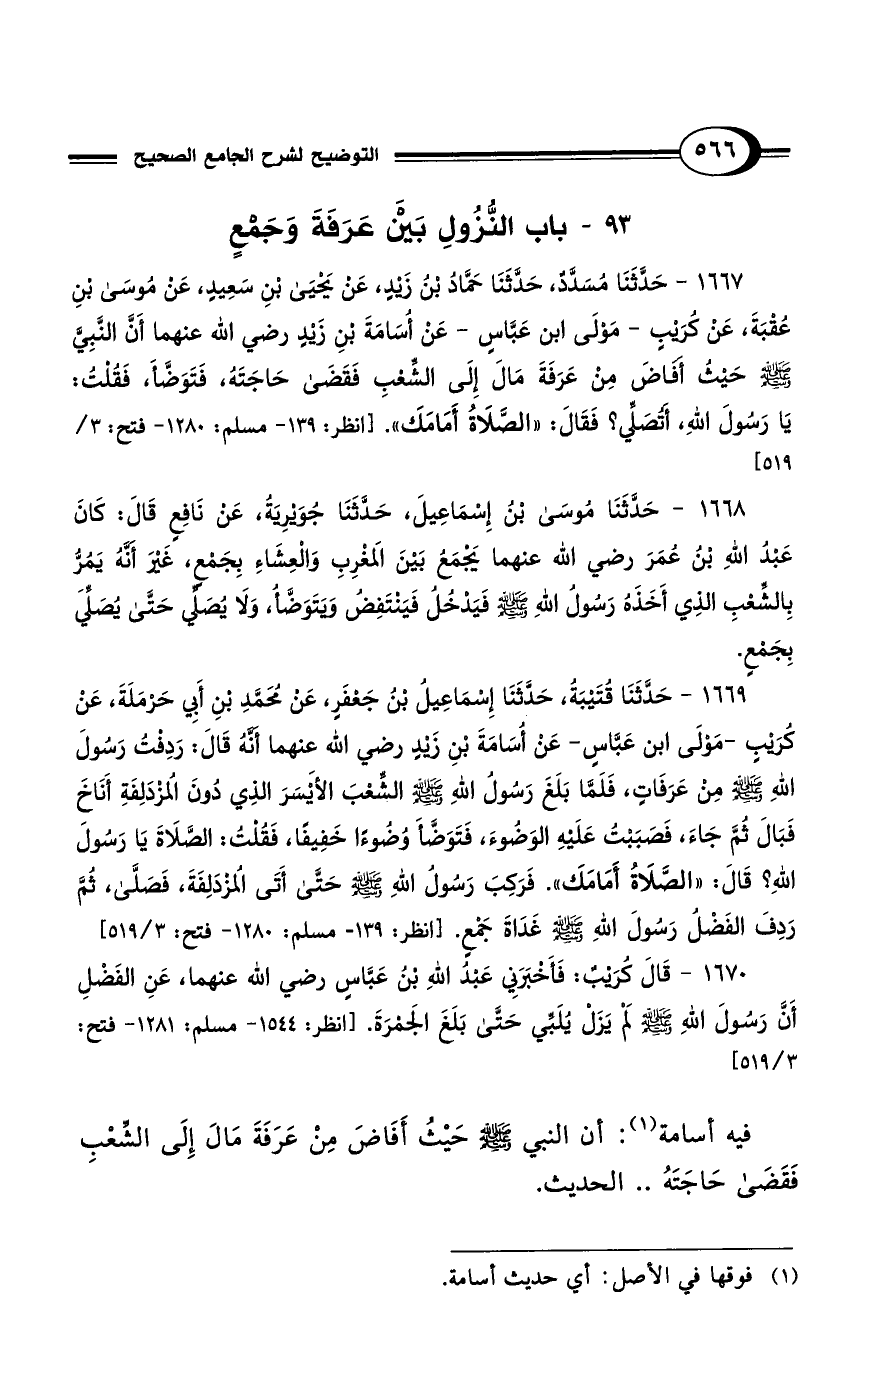 ٥٦٦
التوضيح لشرح الجامع الصحيح
٩٣ - باب النُّزُولِ بَيْنَ عَرَفَةَ وَجَمْعٍ
١٦٦٧ - حَدَّثَنَا مُسَدَّدٌ، حَدَّثَنَا حَمَّادُ بْنُ زَيْدٍ، عَنْ يَحْيَىٰ بْنِ سَعِيدٍ، عَنْ مُوسَىٰ بْنِ
عُقْبَةَ، عَنْ كُرَيْبٍ - مَوْلَى ابن عَبَّاسٍ - عَنْ أُسَامَةَ بْنِ زَيْدٍ رضي الله عنهما أَنَّ النَّبِيَّ
ﷺ حَيْثُ أَفَاضَ مِنْ عَرَفَةَ مَالَ إِلَى الشِّعْبِ فَقَضَىٰ حَاجَتَهُ، فَتَوَضَّأَ، فَقُلْتُ:
يَا رَسُولَ اللهِ، أَتُصَلِّي؟ فَقَالَ: «الصَّلَاةُ أَمَامَكَ». [انظر: ١٣٩- مسلم: ١٢٨٠- فتح: ٣/
٥١٩]
١٦٦٨ - حَدَّثَنَا مُوسَىٰ بْنُ إِسْمَاعِيلَ، حَدَّثَنَا جُوَيْرِيَةُ، عَنْ نَافِعٍ قَالَ: كَانَ
عَبْدُ اللهِ بْنُ عُمَرَ رضي الله عنهما يَجْمَعُ بَيْنَ المَغْرِبِ وَالْعِشَاءِ بِجَمْعٍ، غَيْرَ أَنَّهُ يَمُرُّ
بِالشِّعْبِ الذِي أَخَذَهُ رَسُولُ اللهِ ﷺ فَيَدْخُلُ فَيَنْتَفِضُ وَيَتَوَضَّأُ، وَلَا يُصَلِّي حَتَّىٰ يُصَلِّيَ
بِجَمْعٍ.
١٦٦٩ - حَدَّثَنَا قُتَيْبَةُ، حَدَّثَنَا إِسْمَاعِيلُ بْنُ جَعْفَرٍ، عَنْ مُحَمَّدِ بْنِ أَبِي حَرْمَلَةَ، عَنْ
كُرَيْبٍ -مَوْلَى ابن عَبَّاسٍ- عَنْ أُسَامَةَ بْنِ زَيْدٍ رضي الله عنهما أَنَّهُ قَالَ: رَدِفْتُ رَسُولَ
اللهِ ﷺ مِنْ عَرَفَاتٍ، فَلَمَّا بَلَغَ رَسُولُ اللهِ ﷺ الشِّعْبَ الأَيْسَرَ الذِي دُونَ المُزْدَلِفَةِ أَنَاخَ
فَبَالَ ثُمَّ جَاءَ، فَصَبَبْتُ عَلَيْهِ الوَضُوءَ، فَتَوَضَّأَ وُضُوءًا خَفِيفًا، فَقُلْتُ: الصَّلَاةَ يَا رَسُولَ
اللهِ؟ قَالَ: «الصَّلَاةُ أَمَامَكَ». فَرَكِبَ رَسُولُ اللهِ ﷺ حَتَّىٰ أَتَى المُزْدَلِفَةَ، فَصَلَّىٰ، ثُمَّ
رَدِفَ الفَضْلُ رَسُولَ اللهِ ﷺ غَدَاةَ جَمْعٍ. [انظر: ١٣٩- مسلم: ١٢٨٠- فتح: ٥١٩/٣]
١٦٧٠ - قَالَ كُرَيْبٌ: فَأَخْبَرَنِي عَبْدُ اللهِ بْنُ عَبَّاسٍ رضي الله عنهما، عَنِ الفَضْلِ
أَنَّ رَسُولَ اللهِ ﷺ لَمْ يَزَلْ يُلَبِّي حَتَّىٰ بَلَغَ الجَمْرَةَ. [انظر: ١٥٤٤- مسلم: ١٢٨١- فتح:
٥١٩/٣]
فيه أسامة(١): أن النبي ﷺ حَيْثُ أَفَاضَ مِنْ عَرَفَةَ مَالَ إِلَى الشِّعْبِ
فَقَضَىٰ حَاجَتَهُ .. الحديث.
(١) فوقها في الأصل: أي حديث أسامة.